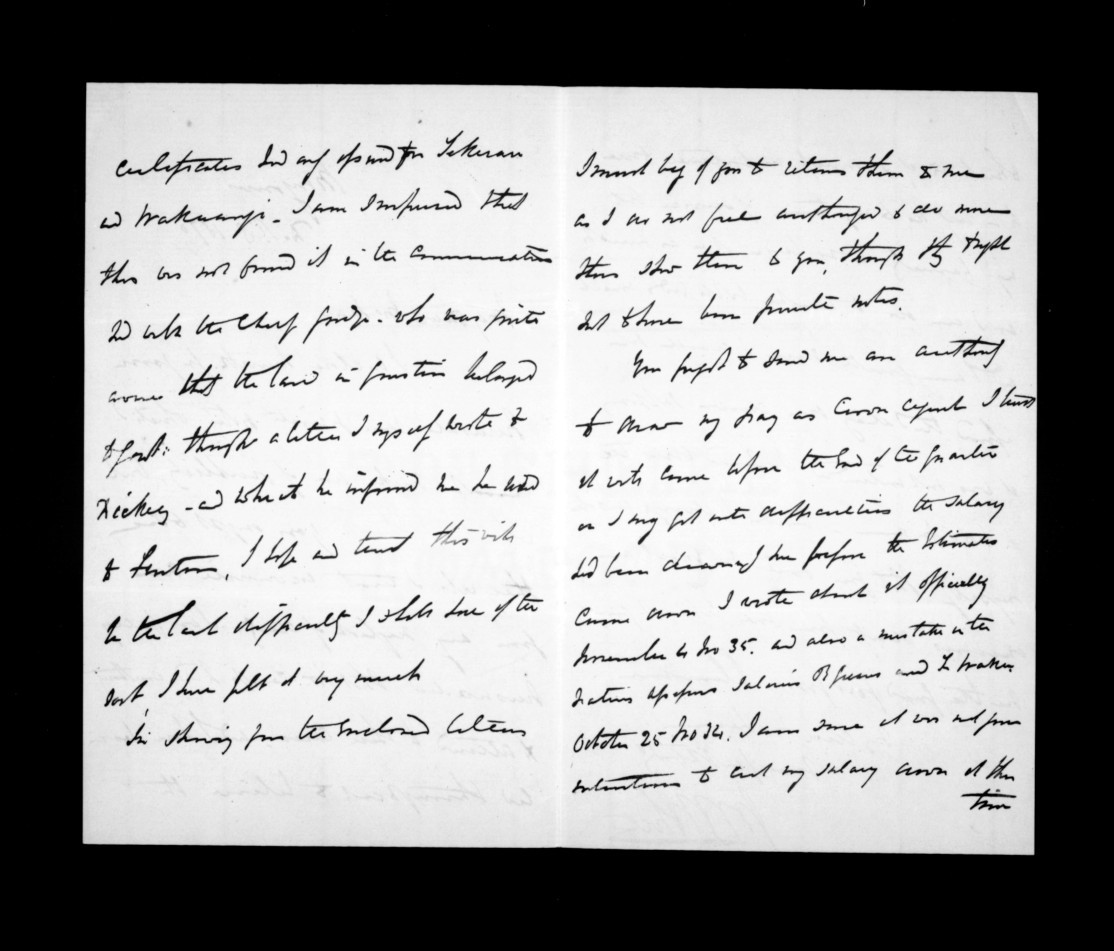 certificates had only passed for Tekerau
and Wakawangi - I am surprised that
this was not found out in the communications
had with the Chief Judge - who was quite
aware that the land in question belonged
to Govt: through a letter I myself wrote to
Dickey - and which he informed me he had
to Fenton, I hope and trust this will
be the last difficulty I shall have of the
sort, I have felt it very much
In showing you the enclosed letters
I must beg of you to return them to me
as I do not feel authorized to do more
than show them to you, though they might
not to have been private notes.
You forgot to send me an authority
to draw my pay as Crown agent I trust
it will come before the end of the Quarter
or I may get into difficulties the salary
had been drawn by me before the Estimates
came down I wrote about it officially
November 4 No 35. and also a mistake in the
Native Assessors Salaries
October 25 No 34. I am sure it was not your
intention to cut my salary down at this
time